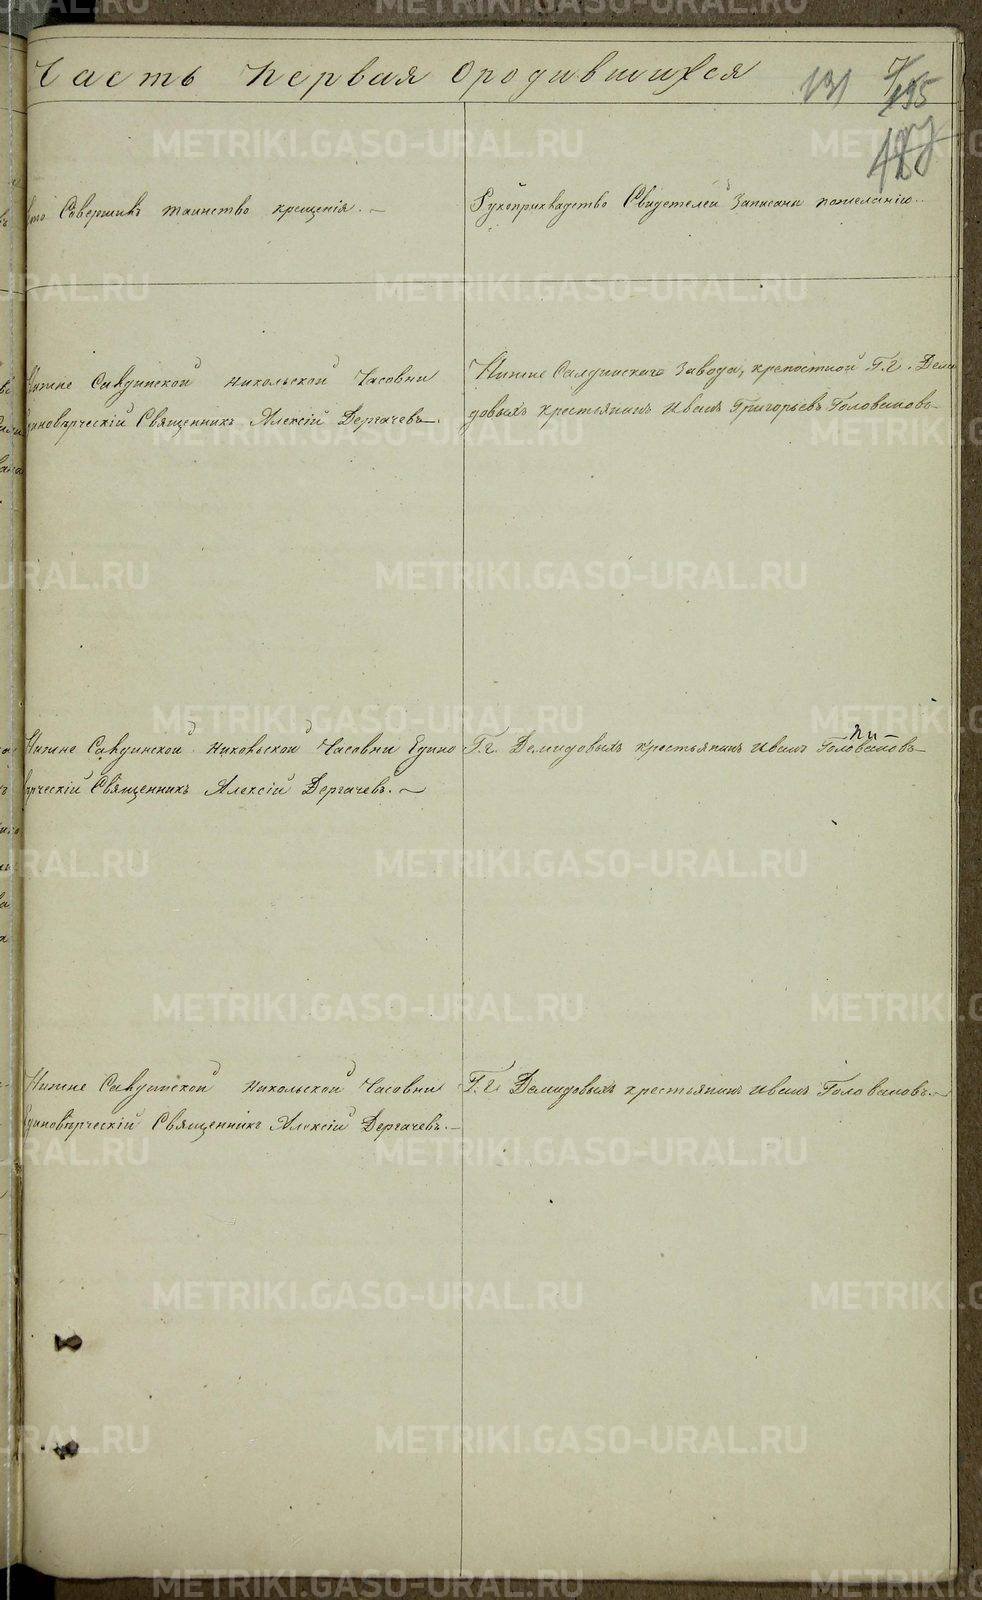 Часть первая о родившихся
131
195
Кто Совершилъ таинство крещенія.
Рукоприкладство Свидетелей Записани пожеланію.
Нижне Салдинской Никольской Часовни
Единоверческій Священникъ Алексій Дергачевъ.
Нижне Салдинскаго Завода, крепостной Г.г. Деми
довыхъ крестьянинъ Иванъ Григорьевъ Головановъ
Нижне Салдинской Никольской Часовни Едино
верческій Священникъ Алексій Дергачевъ.
Г.г. Демидовыхъ крестьянинъ Иванъ Головановъ
Нижне Салдинской Никольской Часовни
Единоверческій Священникъ Алексій Дергачевъ.
Г.г. Демидовыхъ крестьянинъ Иванъ Головановъ.
METRIKI.GASO-URAL.RU